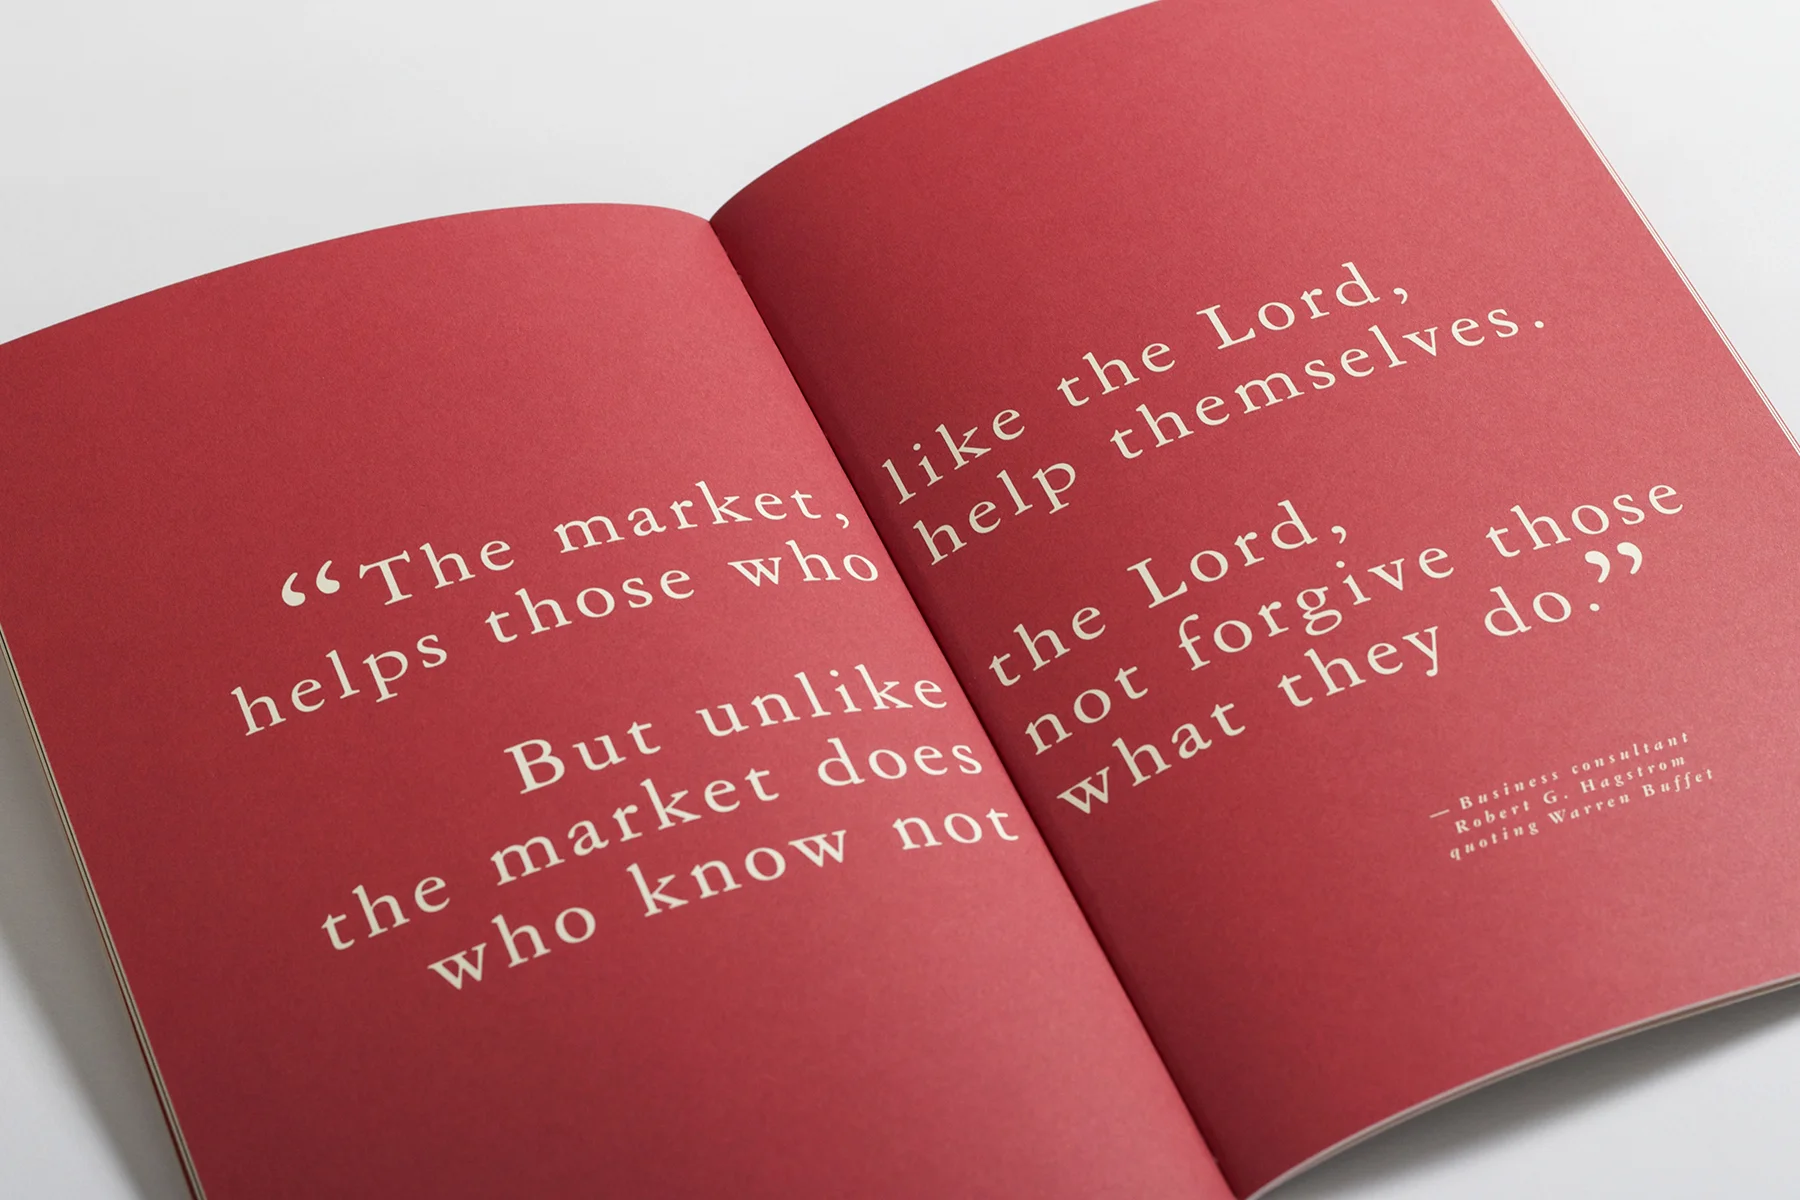 “The market, like the Lord,
helps those who help themselves.
But unlike the Lord,
the market does not forgive those
who know not what they do.”
— Business consultant
Robert G. Hagstrom
quoting Warren Buffet